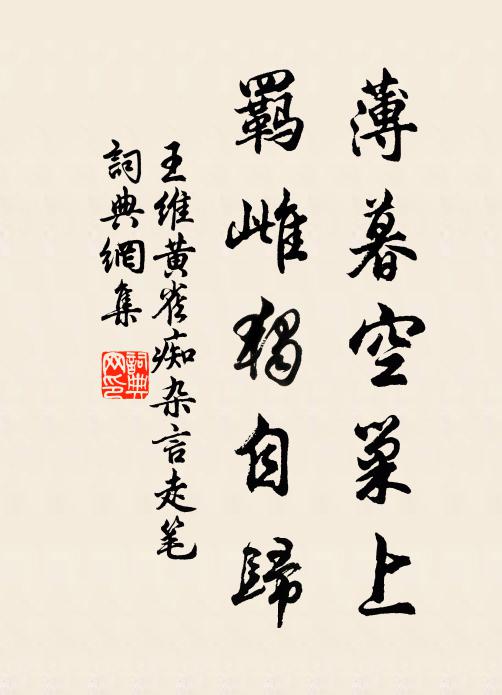 薄暮空巢上
羈雌獨自歸
王维黄雀痴杂言走笔
詞典網集
詞典
网印